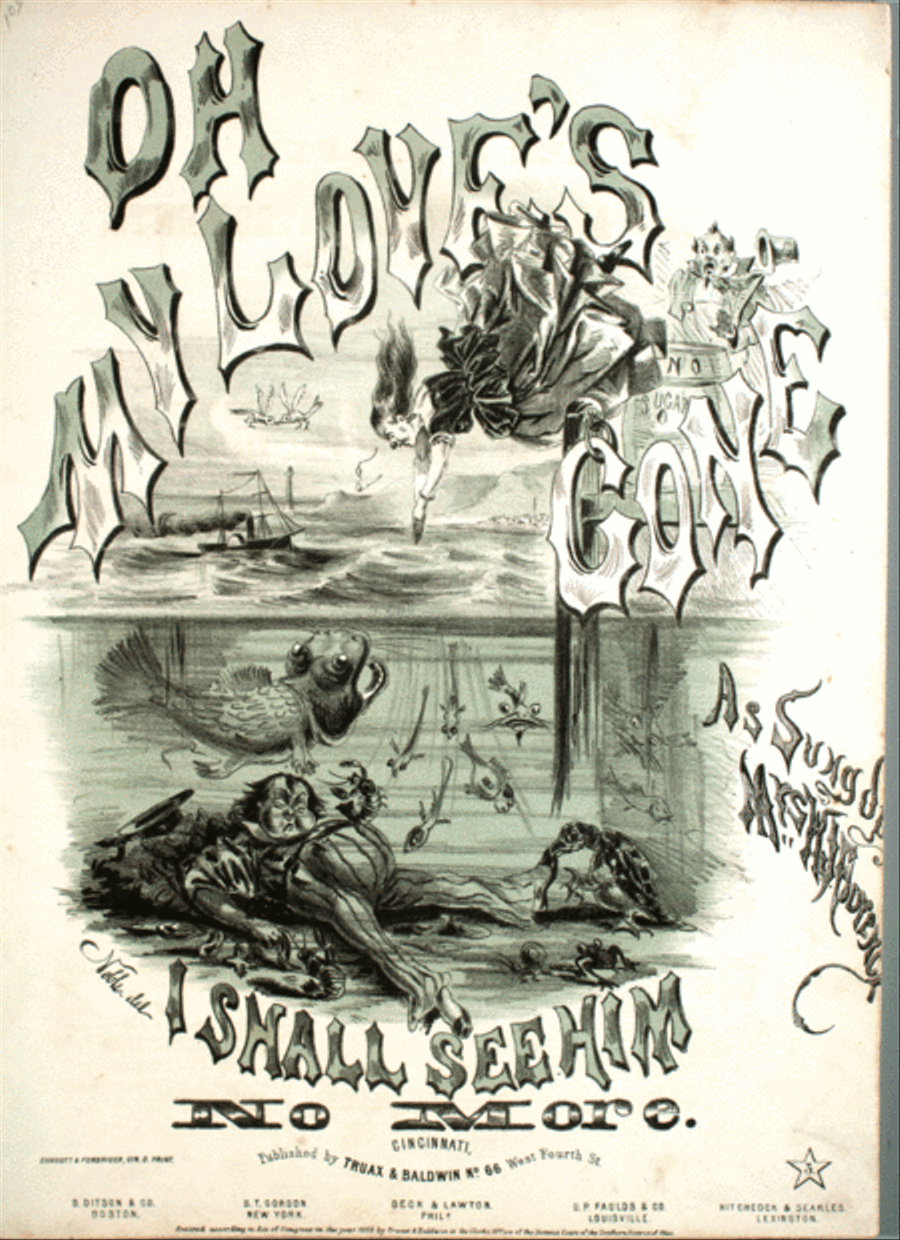 OH
MY LOVE'S
GONE
NO
SUGAR
As Sung by
Noble del.
I SHALL SEE HIM
No More.
CINCINNATI,
Published by TRUAX & BALDWIN No. 66 West Fourth St.
EHRGOTT & FORBRIGER, CIN. O. PRINT.
5
O. DITSON & CO.
BOSTON.
S.T. GORDON
NEW YORK.
BECK & LAWTON
PHILA
D.P. FAULDS & CO.
LOUISVILLE.
HITCHCOCK & SEARLES
LEXINGTON.
Entered according to Act of Congress in the year by Truax & Baldwin at the Clerks Office of the District Court of the Southern District of Ohio.